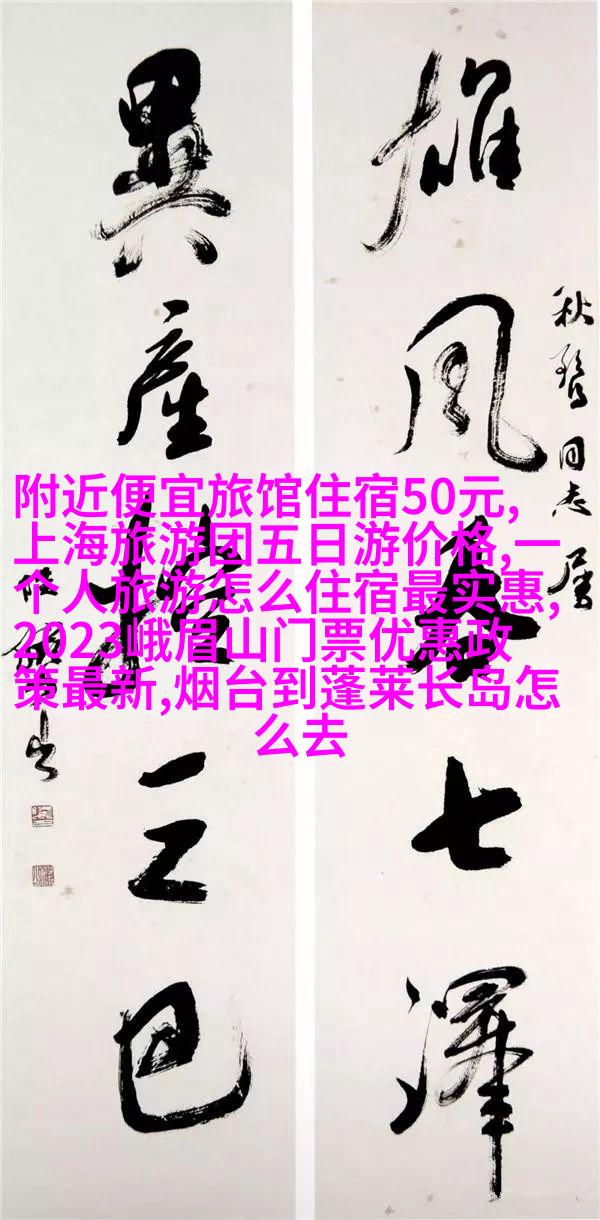 雄风七澤
同志属
異產三巴
附近便宜旅馆住宿50元,
上海旅游团五日游价格,一
个人旅游怎么住宿最实惠,
2023峨眉山门票优惠政
策最新,烟台到蓬莱长岛怎
么去